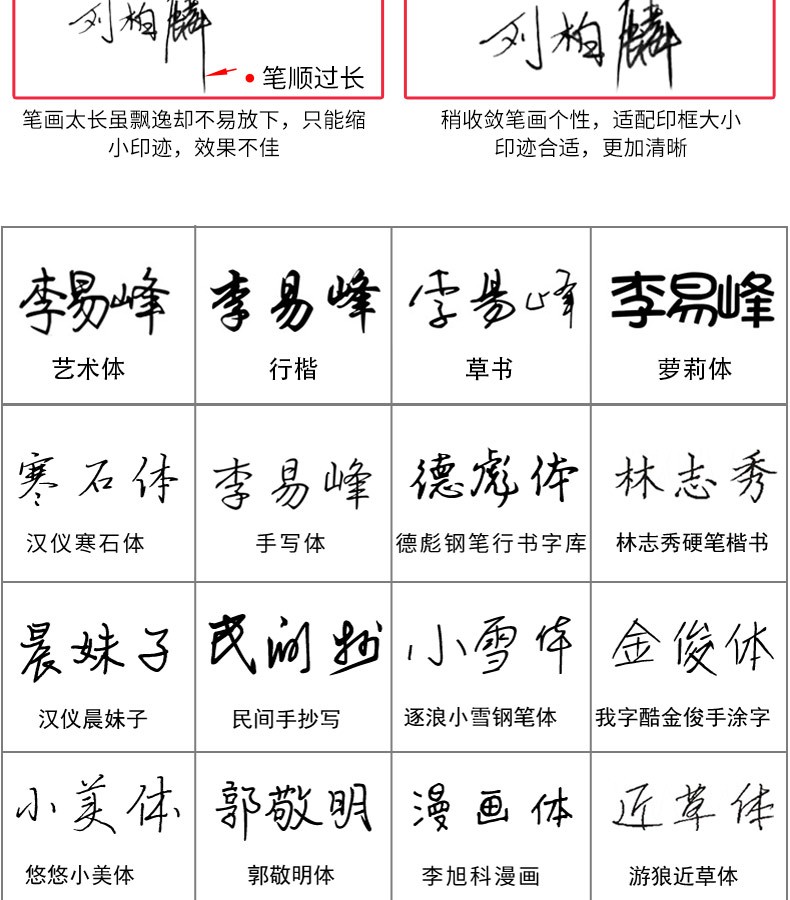 刘柏麟
笔顺过长
笔画太长虽飘逸却不易放下，只能缩
小印迹，效果不佳
刘柏麟
稍收敛笔画个性，适配印框大小
印迹合适，更加清晰
李易峰
艺术体
李易峰
行楷
李易峰
草书
李易峰
萝莉体
寒石体
汉仪寒石体
李易峰
手写体
德彪体
德彪钢笔行书字库
林志秀
林志秀硬笔楷书
晨妹子
汉仪晨妹子
民间抄
民间手抄写
小雪体
逐浪小雪钢笔体
金俊体
我字酷金俊手涂字
小美体
悠悠小美体
郭敬明
郭敬明体
漫画体
李旭科漫画
近草体
游狼近草体